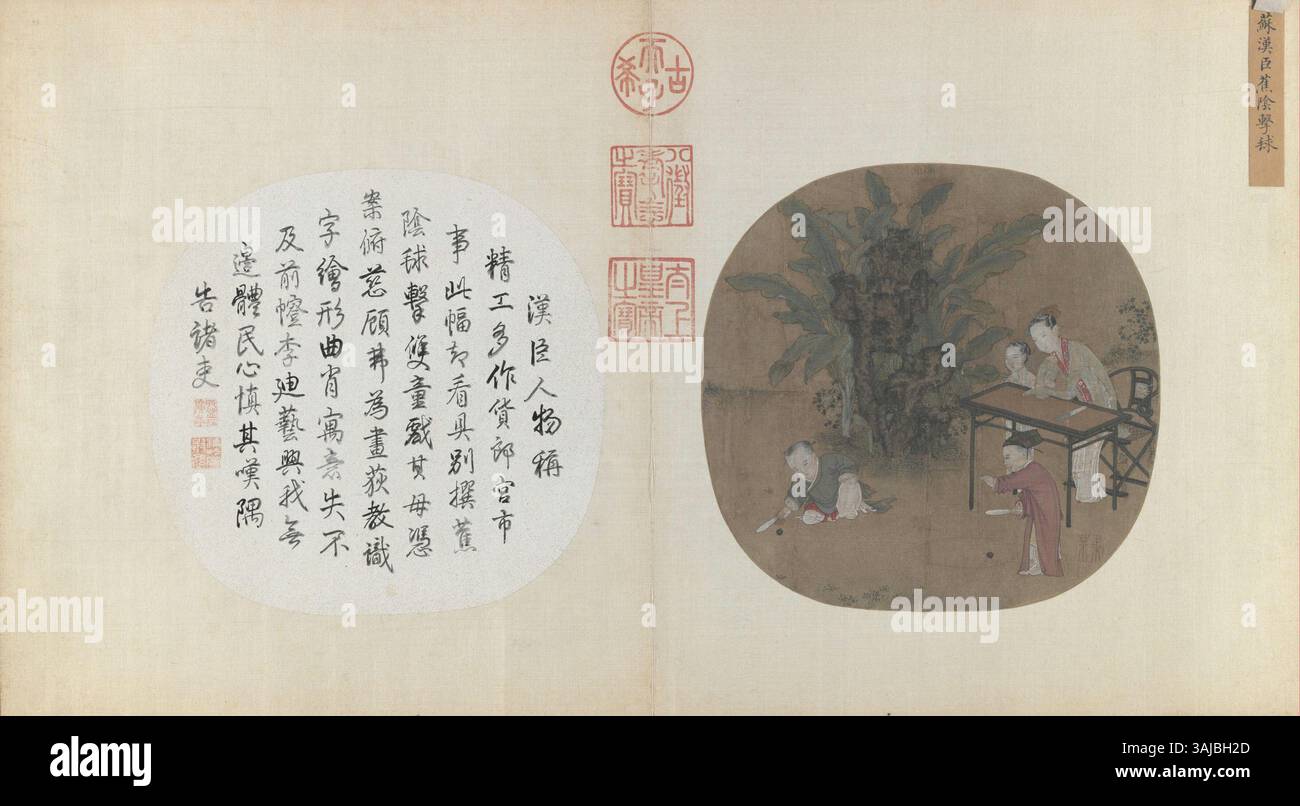 蘇漢臣蕉陰擊球
古希天子
八徵耄念之寶
太上皇帝之寶
漢臣人物稱
精工多作貨郎宮市
事此幅却看具別撰蕉
陰球擊雙童戲其母憑
案俯慈顧弗為畫荻教識
字繪形曲肖寓意失不
及前幨李迪藝興我無
邊體民心慎其嘆隅
告諸吏
alamy
Image ID: 3AJBH2D
www.alamy.com